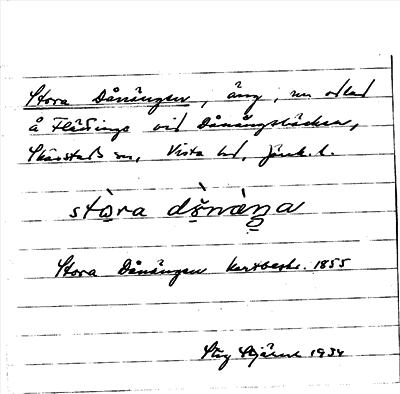 Stora Dånängen, äng, nu odlad
å Flättinge vid Dånängsbäcken,
Skärstads sn, Vista hd, Jönk. l.
stòra dånæ̀ŋa
Stora Dånängen Kartbeskr. 1855
Stig 1934